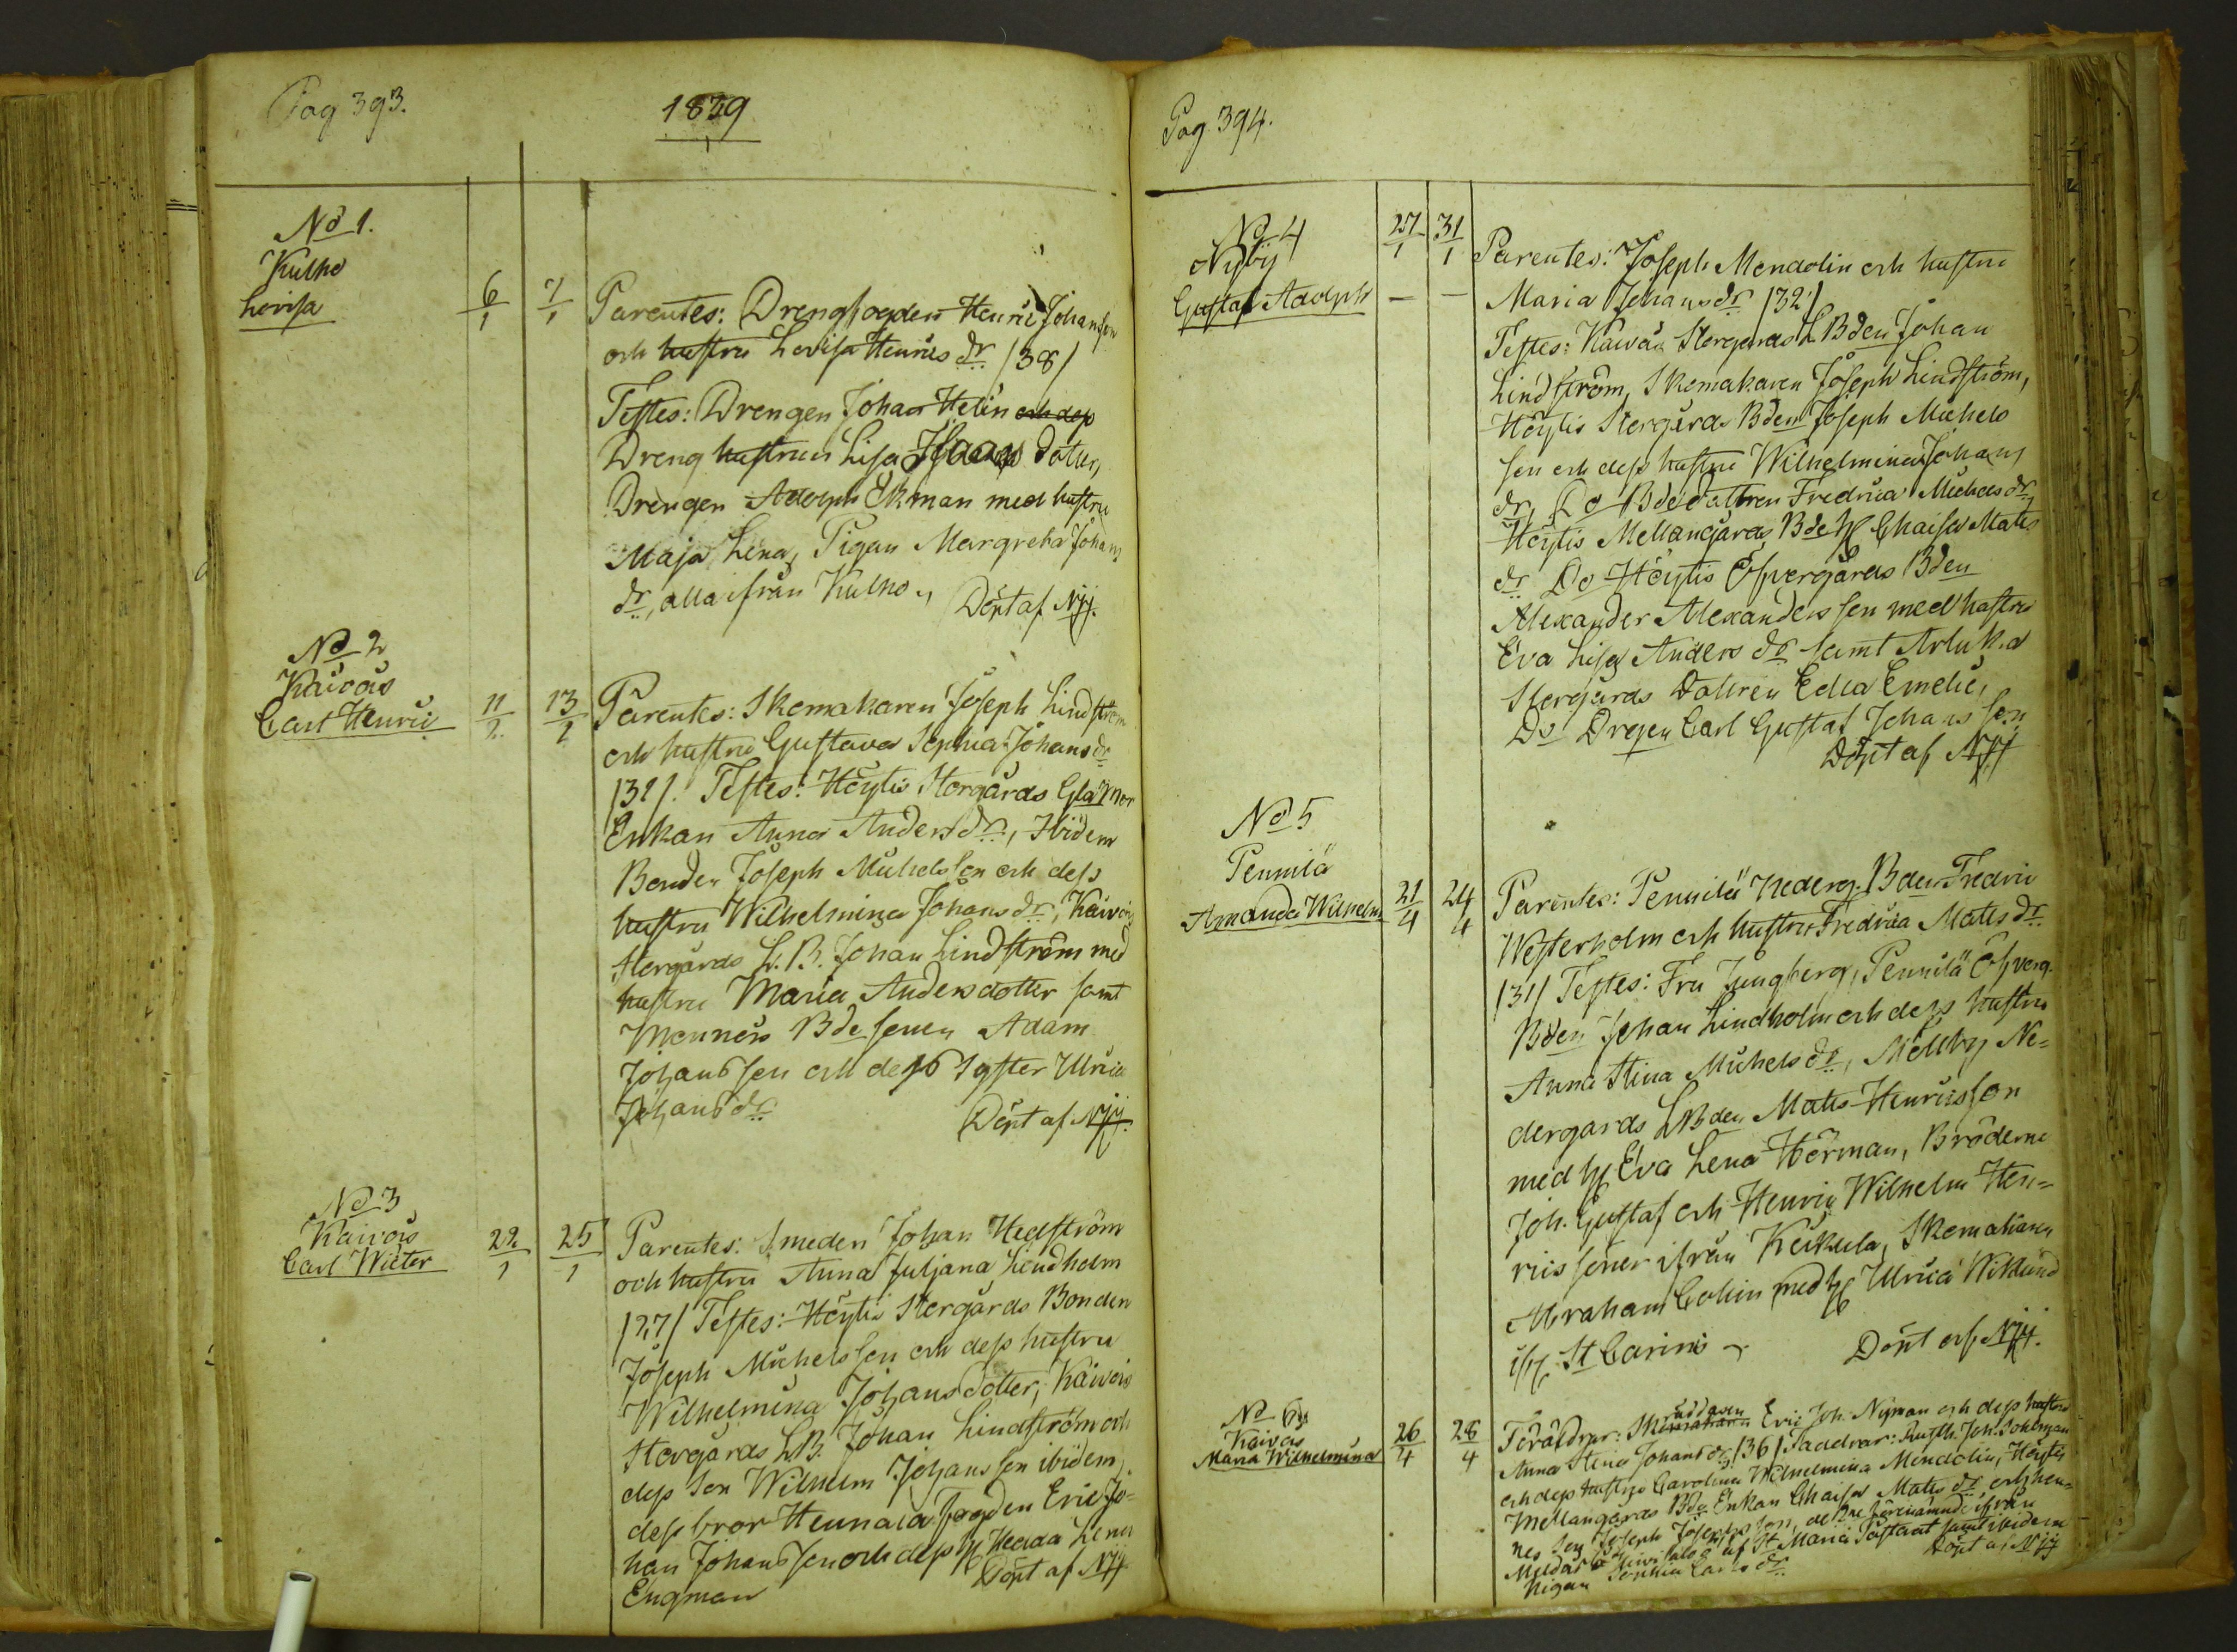 Pag 393.
1839
No 1.
Kulho
Lovisa
6/1
7/1
Parentes: Drengfogden Henric Johansson
och hustru Lovisa Henrics dr /38/
Testes: Drengen Johan Helin och dess
Dreng hustrun Lisa Isaacs dotter,
Drengen Adolph Ekman med hustru
Maja Lena, Pigan Margreta Johans
dr, alla ifrån Kulho.
Döpt af Njj.
No 2
Kaivois
Carl Henric
11/2
13/2
Parentes: Skomakaren Joseph Lindström
och hustru Gustava Sophia Johans dr
/32/. Testes: Höytis Storgårds Gla Mor
Enkan Anna Anders dr, Ibidem
Bonden Joseph Michelsson och dess
hustru Wilhelmina Johans dr, Kaivois
Storgårds L. B. Johan Lindström med
hustru Maria Andersdotter samt
Monnois Bde sonen Adam
Johansson och dess Syster Ulrica
Johans dr
Döpt af Njj.
No 3
Kaivois
Carl Victor
22/1
25/1
Parentes: Smeden Johan Hedström
och hustru Anna Juliana Lindholm
/27/ Testes: Höytis Storgårds Bonden
Joseph Michelsson och dess hustru
Wilhelmina Johansdotter, Kaivois
Storgårds L.B. Johan Lindström och
dess Son Wilhelm Johansson ibidem,
dess bror Hennala Fogden Eric Jo=
han Johansson och dess H Hedda Lena
Engman
Döpt af Njj
Pag 394.
No 4
Nyby
Gustaf Adolph
27/1
31/1
Parentes: Joseph Mendolin och hustru
Maria Johans dr /32/
Testes: Kaivois Storgårds L Bden Johan
Lindström, Skomakaren Joseph Lindström,
Höytis Storgårds Bden Joseph Michels
son och dess hustru Wilhelmina Johans
dr, Do Bde dottren Fredrica Michels dr
Höytis Mellangårds Bde H Chaisa Mats
dr Do Höytis Öfvergårds Bden
Alexander Alexandersson med hustru
Eva Lisa Anders dr samt Arlukka
Storgårds Dottren Edla Emelie,
Do Drengen Carl Gustaf Johansson
Döpt af Njj
No 5
Pennilä
Amanda Wilhelm
21/4
24/4
Parentes: Pennilä Nederg. Bden Fredric
Westerholm och hustru Fredrica Mats dr
/31/ Testes: Fru Ljungberg, Pennilä Öfverg.
Bden Johan Lindholm och dess hustru
Anna Stina Michels dr, Mellby Ne=
dergårds LBden Mats Henricsson
med H Eva Lena Hörman, Bröderne
Joh. Gustaf och Henric Wilhelm Hen=
rics söner ifrån Keikula, Skomakaren
Abraham Colin med H Ulrica Wiklund
ifr. St Carins
Döpt af Njj.
No 6
Kaivois
Maria Wilhelmina
26/4
28/4
Föräldrar: Skomakaren Skräddaren Eric Joh. Nyman och dess hustru
Anna Stina Johans dr /36/ Faddrar: Rusth. Joh. Sohlman
och dess hustru Carolina Wilhelmina Mendolin, Höytis
Mellangårds Bde Enkan Chaisa Mats dr, och hen=
nes Son Joseph Josephsson,
af St Marie samt ibidem
Pigan Sophia Carls dr
Döpt af Njj